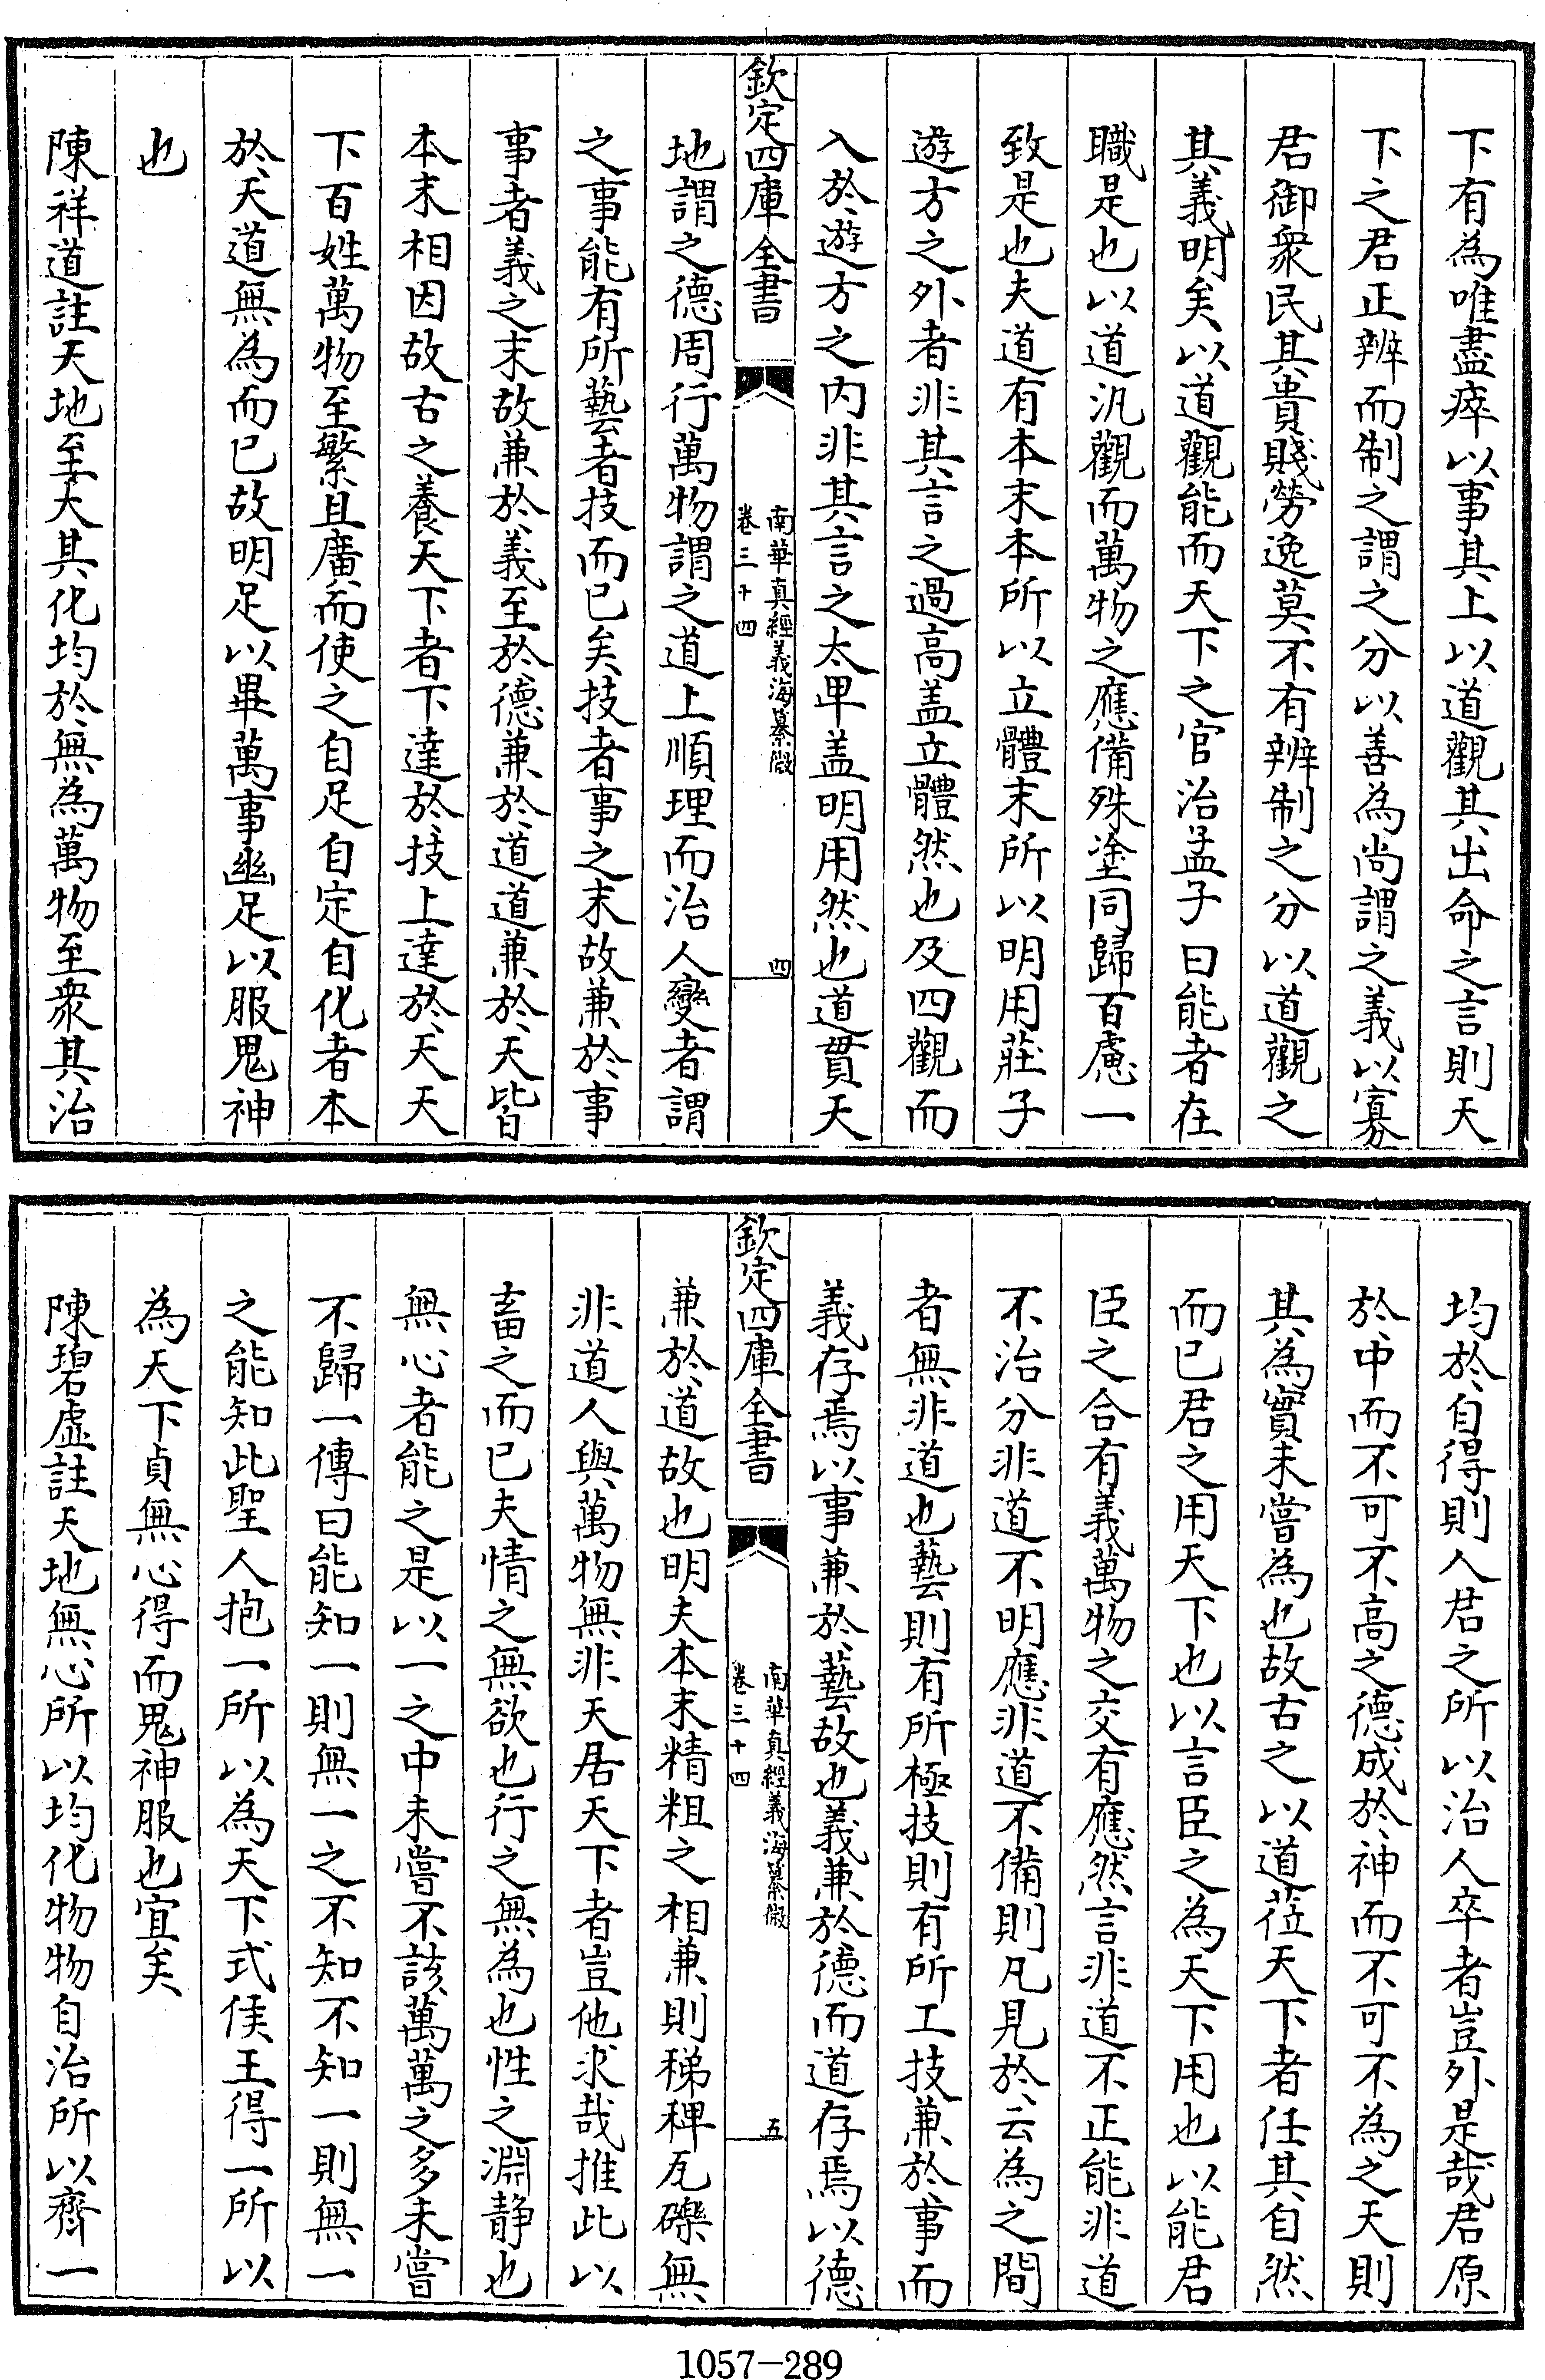 下有為唯盡瘁以事其上以道觀其出命之言則天
下之君正辨而制之謂之分以善為尚謂之義以寡
君御衆民其貴賤勞逸莫不有辨制之分以道觀之
其義明矣以道觀能而天下之官治孟子曰能者在
職是也以道汎觀而萬物之應備殊塗同歸百慮一
致是也夫道有本末本所以立體末所以明用莊子
遊方之外者非其言之過高盖立體然也及四觀而
入於遊方之内非其言之太卑盖明用然也道貫天
欽定四庫全書
南華真經義海纂微
卷三十四
四
地謂之德周行萬物謂之道上順理而治人變者謂
之事能有所藝者技而已矣技者事之末故兼於事
事者義之末故兼於義至於德兼於道道兼於天皆
本末相因故古之養天下者下達於技上達於天天
下百姓萬物至繁且廣而使之自足自定自化者本
於天道無為而已故明足以畢萬事幽足以服鬼神
也
陳祥道註天地至大其化均於無為萬物至衆其治
均於自得則人君之所以治人卒者豈外是哉君原
於中而不可不高之德成於神而不可不為之天則
其為實未嘗為也故古之以道莅天下者任其自然
而已君之用天下也以言臣之為天下用也以能君
臣之合有義萬物之交有應然言非道不正能非道
不治分非道不明應非道不備則凡見於云為之間
者無非道也藝則有所極技則有所工技兼於事而
義存焉以事兼於藝故也義兼於德而道存焉以德
欽定四庫全書
南華真經義海纂微
卷三十四
五
兼於道故也明夫本末精粗之相兼則稊稗瓦礫無
非道人與萬物無非天居天下者豈他求哉推此以
畜之而已夫情之無欲也行之無為也性之淵静也
無心者能之是以一之中未嘗不該萬萬之多未嘗
不歸一傳曰能知一則無一之不知不知一則無一
之能知此聖人抱一所以為天下式侯王得一所以
為天下貞無心得而鬼神服也宜矣
陳碧虛註天地無心所以均化物物自治所以齊一
1057-289